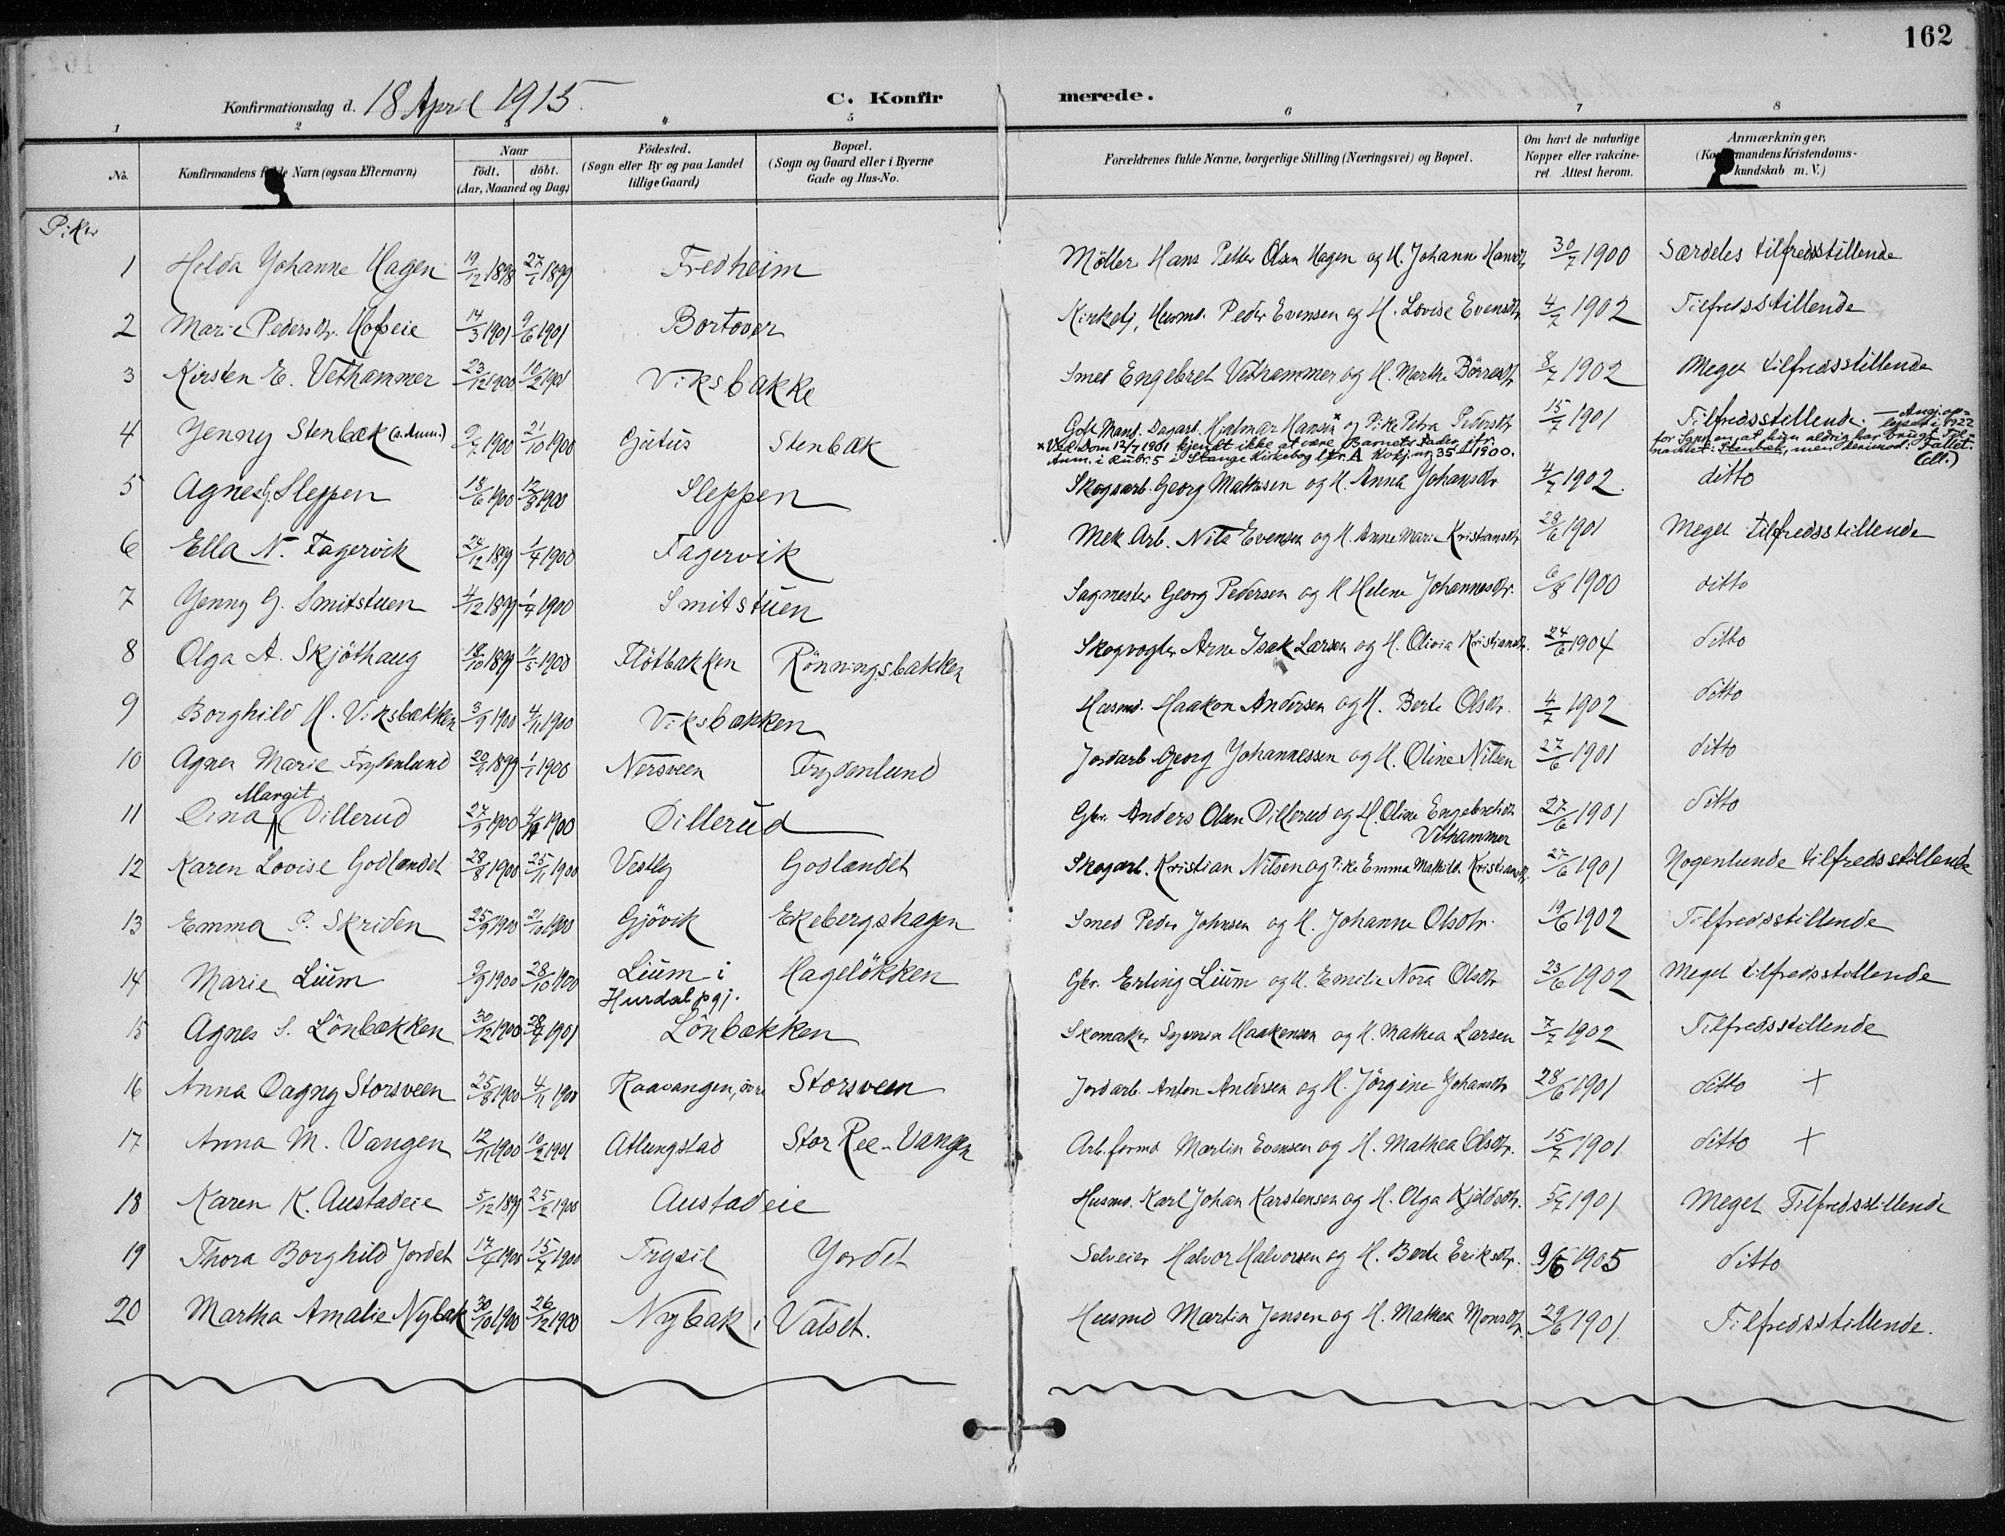 162
Konfirmationsdag d. 18 April 1915. C. Konfirmerede.
1 2 3 4 5 6 7 8
No. Konfirmandens fulde Navn (ogsaa Efternavn) Naar födt. döbt. (Aar, Maaned og Dag) Födested. (Sogn eller By og paa Landet tillige Gaard) Bopæl. (Sogn og Gaard eller i Byerne Gade og Hus-No. Forældrenes fulde Navne, borgerlige Stilling (Næringsvei) og Bopæl. Om havt de naturlige Kopper eller vakcineret. Attest herom. Anmærkninger. (Konfirmandens Kristendomskundskab m. V.)
Piker
1 Hilda Johanne Hagen 19/12 1898 27/1 1899 Fredheim Möller Hans Petter Olsen Hagen og H. Johanne Hansdtr 30/7 1900 Særdeles tilfredsstillende
2 Marie Pedersdtr. Hofseie 14/3 1901 9/6 1901 Bortover Kirketj, Husmd. Peder Evensen og H. Lovise Evensdtr 4/7 1902 Tilfredsstillende
3 Kirsten E. Vethammer 23/12 1900 10/2 1901 Viksbakke Smed Engebret Vethammer og H. Marthe Börresdtr 8/7 1902 Meget tilfredsstillende
4 Jenny Stenbæk (s. Anm.) 9/7 1900 21/10 1900 Gjutus Stenbæk Hjalmar Hansen x og Pike Petra Pedersdtr 15/7 1901 Tilfredsstillende. — Angi. oplyser i 1922
x Ved Dom 12/7 1901 kjendt ikke at være Barnets Fader jfr. for Sprl. en, at hun aldrig har brugt
Anm. i Rubr. 5 i Stange Kirkebog ltr. A No kj. nr 35 - 1900. navnet: Stenbæk, men derimod: Fallet.
5 Agnes G. Sleppen 18/6 1900 12/8 1900 Sleppen Skogsarb. Georg Mathisen og H. Anna Johansdtr 4/7 1902. ditto
6 Ella N. Fagervik 24/12 1899 1/4 1900 Fagervik Mek Arb. Nils Evensen og H. Anne Marie Kristiansdtr 28/6 1901 Meget tilfredsstillende
7 Jenny G. Smitstuen 4/12 1899 1/4 1900 Smitstuen Sagmester Georg Pedersen og H Helene Johannesdtr. 6/8 1900 ditto
8 Olga A. Skjöthaug 18/10 1899 11/3 1900 Flötbakken Rönningsbakken Skogvogter Arne Isak Larsen og H. Olivia Kristiansdtr. 24/6 1904 ditto
9 Borghild H. Viksbakken 3/9 1900 4/11 1900 Viksbakken Husmd. Haakon Andersen og H. Berte Olsdtr. 4/7 1902 ditto
10 Agnes Marie Frydenlund 20/11 1899 1/1 1900 Nersveen Frydenlund Jordarb Georg Johannessen og H. Oline Nilsen 27/6 1901 ditto
11 Dina Margit Dillerud 27/9 1900 4/11 1900 Dillerud Gbr. Anders Olsen Dillerud og H. Oline Engebretsdtr Vethammer 27/6 1901 ditto
12 Karen Lovise Godlandet 28/8 1900 25/11 1900 Vestby Godlandet Skogarb. Kristian Nilsen og Pike Emma Mathild. Kristiansdtr. 27/6 1901 Nogenlunde tilfredsstillende
13 Emma P. Skriden 25/9 1900 21/10 1900 Gjövik Ekebergshagen Smed Peder Johnsen og H. Johanne Olsdtr. 19/6 1902 Tilfredsstillende
14 Marie Lium 9/9 1900 28/10 1900 Lium i Hurdal pgj. Hagelökken Gbr. Erling Lium og H. Emilie Nora Olsdtr 23/6 1902 Meget tilfredsstillende
15 Agnes S. Lönbækken 30/12 1900 28/4 1901 Lönbækken Skomaker Syverin Haakensen og H. Mathea Larsen 7/7 1902 Tilfredsstillende
16 Anna Dagny Storsveen 25/8 1900 4/11 1900 Raavangen, övre Storsveen Jordarb. Anton Andersen og H. Jörgine Johansdtr 28/6 1901 ditto +
17 Anna M. Vangen 12/11 1900 10/2 1901 Atlungstad Stor Ree-Vangen Arb. formd Martin Evensen og H. Mathea Olsdtr. 15/7 1901 ditto +
18 Karen K. Austadeie 5/12 1899 25/2 1900 Austadeie Husmd. Karl Johan Karstensen og H. Olga Kjeldsdtr. 5/7 1901 Meget Tilfredsstillende
19 Thora Borghild Jordet 17/4 1900 15/7 1900 Trysil Jordet Selveier Halvor Halvorsen og H. Berte Eriksdtr. 9/6 1905 ditto
20 Martha Amalie Nybak 30/10 1900 26/12 1900 Nybak i Valset. Husmd Martin Jensen og H. Mathea Monsdtr. 29/6 1901 Tilfredsstillende.